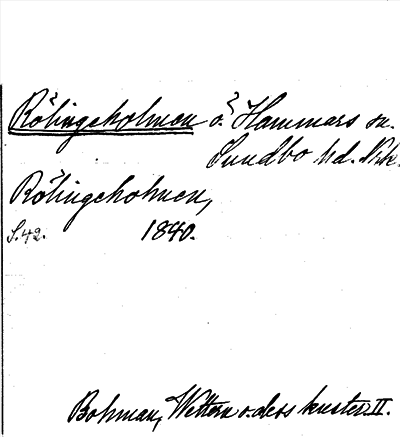 Rölingsholmen ö. Hammars sn.
Sundbo hd. Nke.
Rölingeholmen,
S. 42. 1840.
Bohman, Wettern o. dess kuster II.